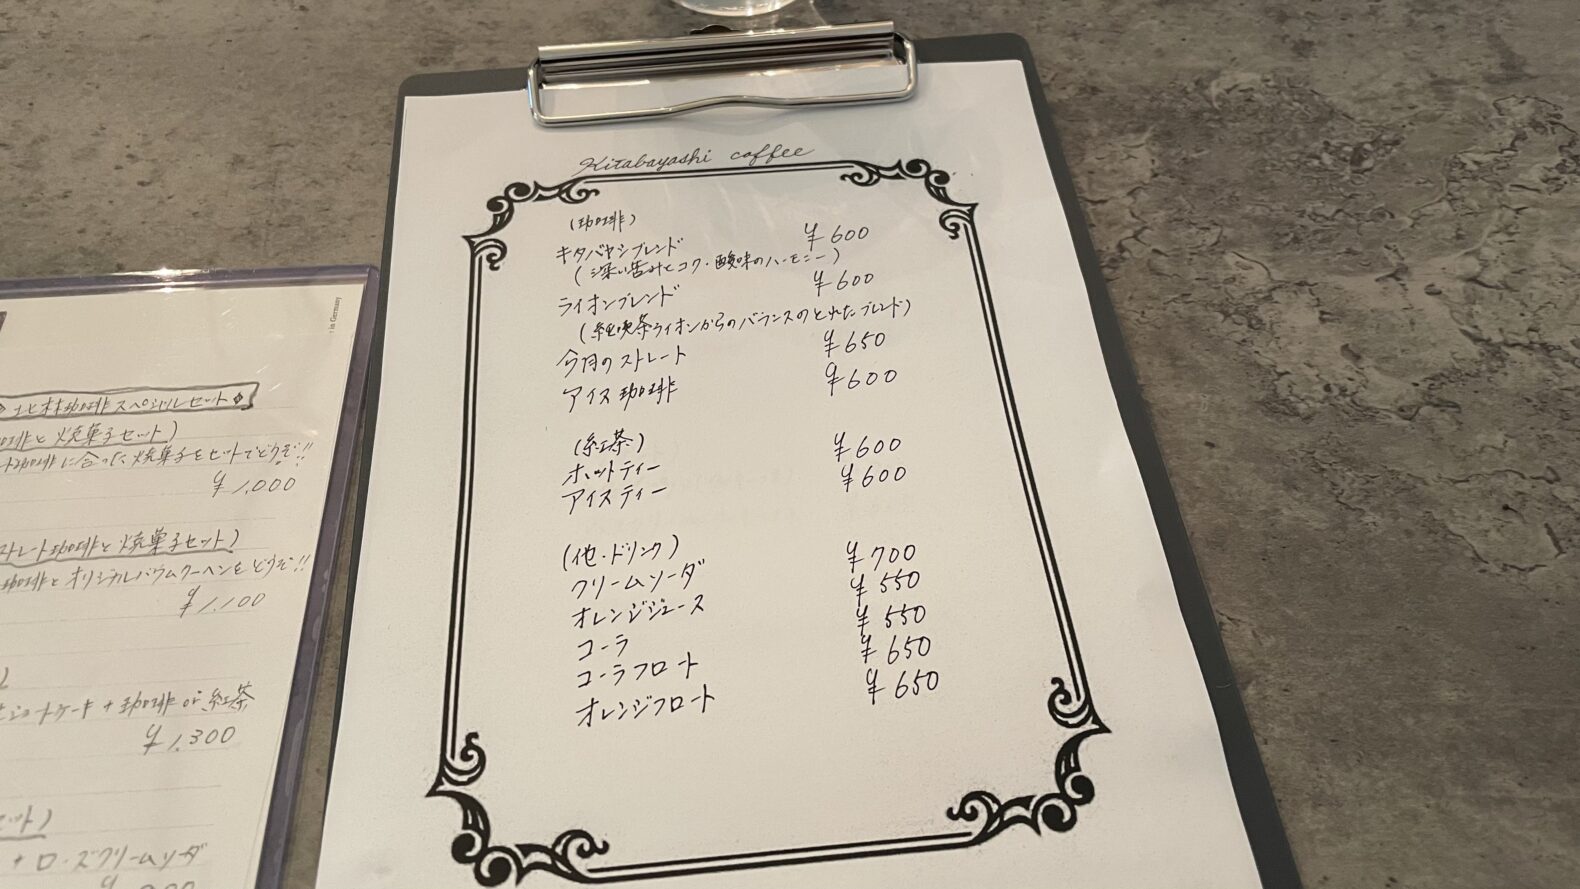 Kitabayashi coffee
(珈琲)
キタバヤシブレンド ¥600
(深い苦みとコク・酸味のハーモニー)
ライオンブレンド ¥600
(純喫茶ライオンからのバランスのとれたブレンド)
今月のストレート ¥650
アイス珈琲 ¥600
(紅茶)
ホットティー ¥600
アイスティー ¥600
(他・ドリンク)
クリームソーダ ¥700
オレンジジュース ¥550
コーラ ¥550
コーラフロート ¥650
オレンジフロート ¥650
in Germany
北林珈琲スペシャルセット
珈琲と焼菓子セット)
珈琲に合った焼菓子をセットでどうぞ!!
¥1,000
ストレート珈琲と焼菓子セット)
珈琲とオリジナルバウムクーヘンをどうぞ!!
¥1,100
ショートケーキ + 珈琲 or 紅茶
¥1,300
セット)
+ ローズクリームソーダ